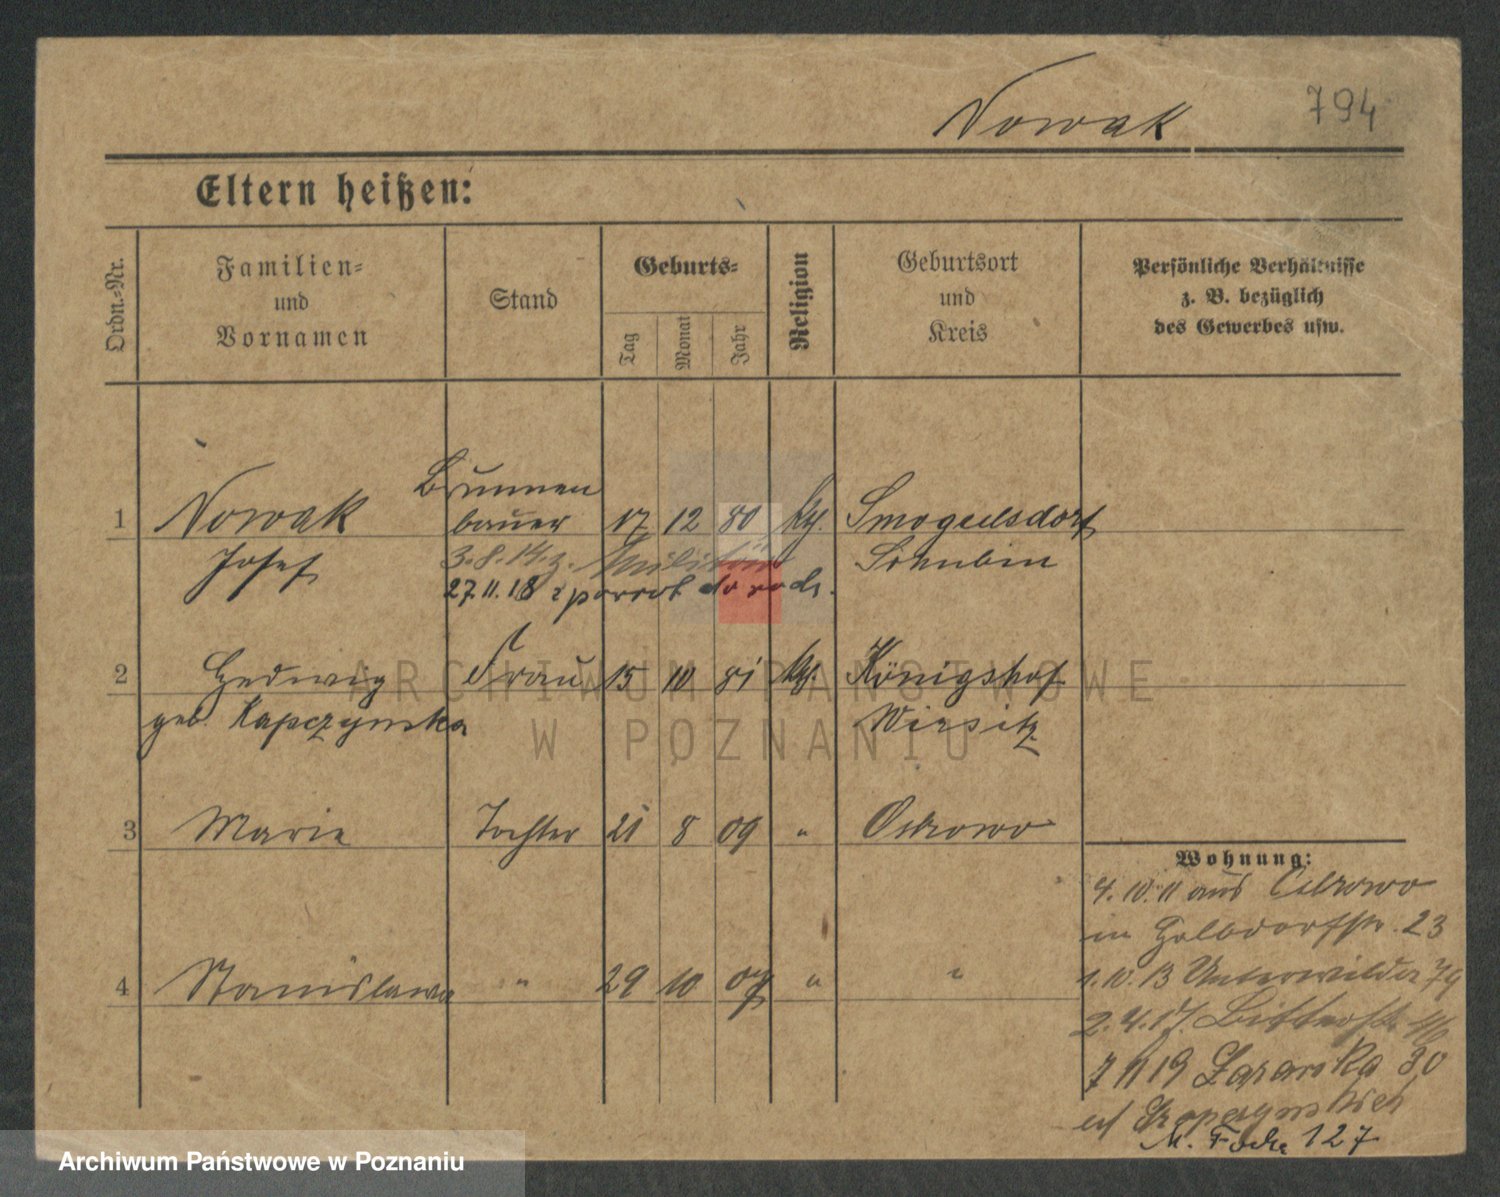 Nowak
794
Eltern heißen:
Ordn.-Nr.
Familien-
und
Vornamen
Stand
Geburts-
Tag
Monat
Jahr
Religion
Geburtsort
und
Kreis
Persönliche Verhältnisse
z. B. bezüglich
des Gewerbes usw.
Brunnen
1 Nowak bauer 17 12 80 Smogulsdorf
Josef 3.8.14. z. Militär Schubin
27.11.18 z powrot do rodz.
2 Hedwig Frau 15 10 81 Königshof
geb. Kapczynska Wirsitz
3 Marie Tochter 21 8 09 " Ostrowo
Wohnung:
4.10.11 aus Ostrowo
in 23
4 Stanislawa " 29 10 " "
1.10.13 Unterwilda 79
2.4.17.
7 11 19 Łazarska 30
M. Focha 127
ARCHIWUM PAŃSTWOWE
W POZNANIU
Archiwum Państwowe w Poznaniu